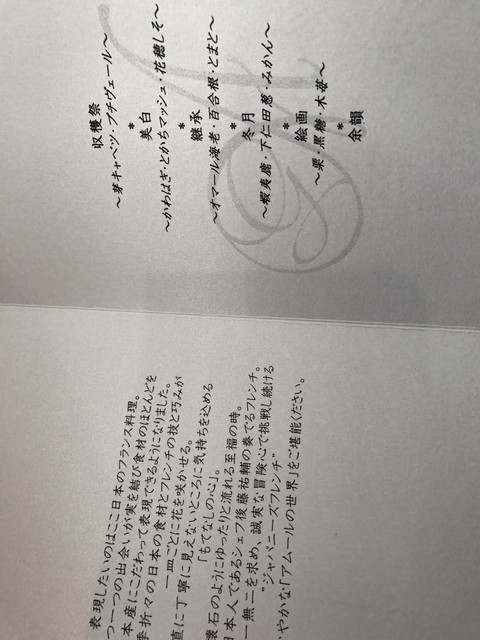 収穫祭
～芽キャベツ・プチヴェール～
*
美白
～かわはぎ・とかちマッシュ・花穂しそ～
*
継承
～オマール海老・百合根・とまと～
*
冬月
～蝦夷鹿・下仁田葱・みかん～
*
絵画
～栗・黒糖・木苺～
*
余韻
表現したいのはここ日本のフランス料理。
一つの出会いが実を結び食材のほとんどを
本産にこだわって表現できるようになりました。
季折々の日本の食材とフレンチの技と巧みが
一皿ごとに花を咲かせる。
直に丁寧に見えないところに気持ちを込める
「もてなしの心」。
懐石のようにゆったりと流れる至福の時。
日本人であるシェフ後藤祐輔の奏でるフレンチ。
一無二を求め、誠実な冒険心で挑戦し続ける
"ジャパニーズフレンチ"
やかな「アムールの世界」をご堪能ください。